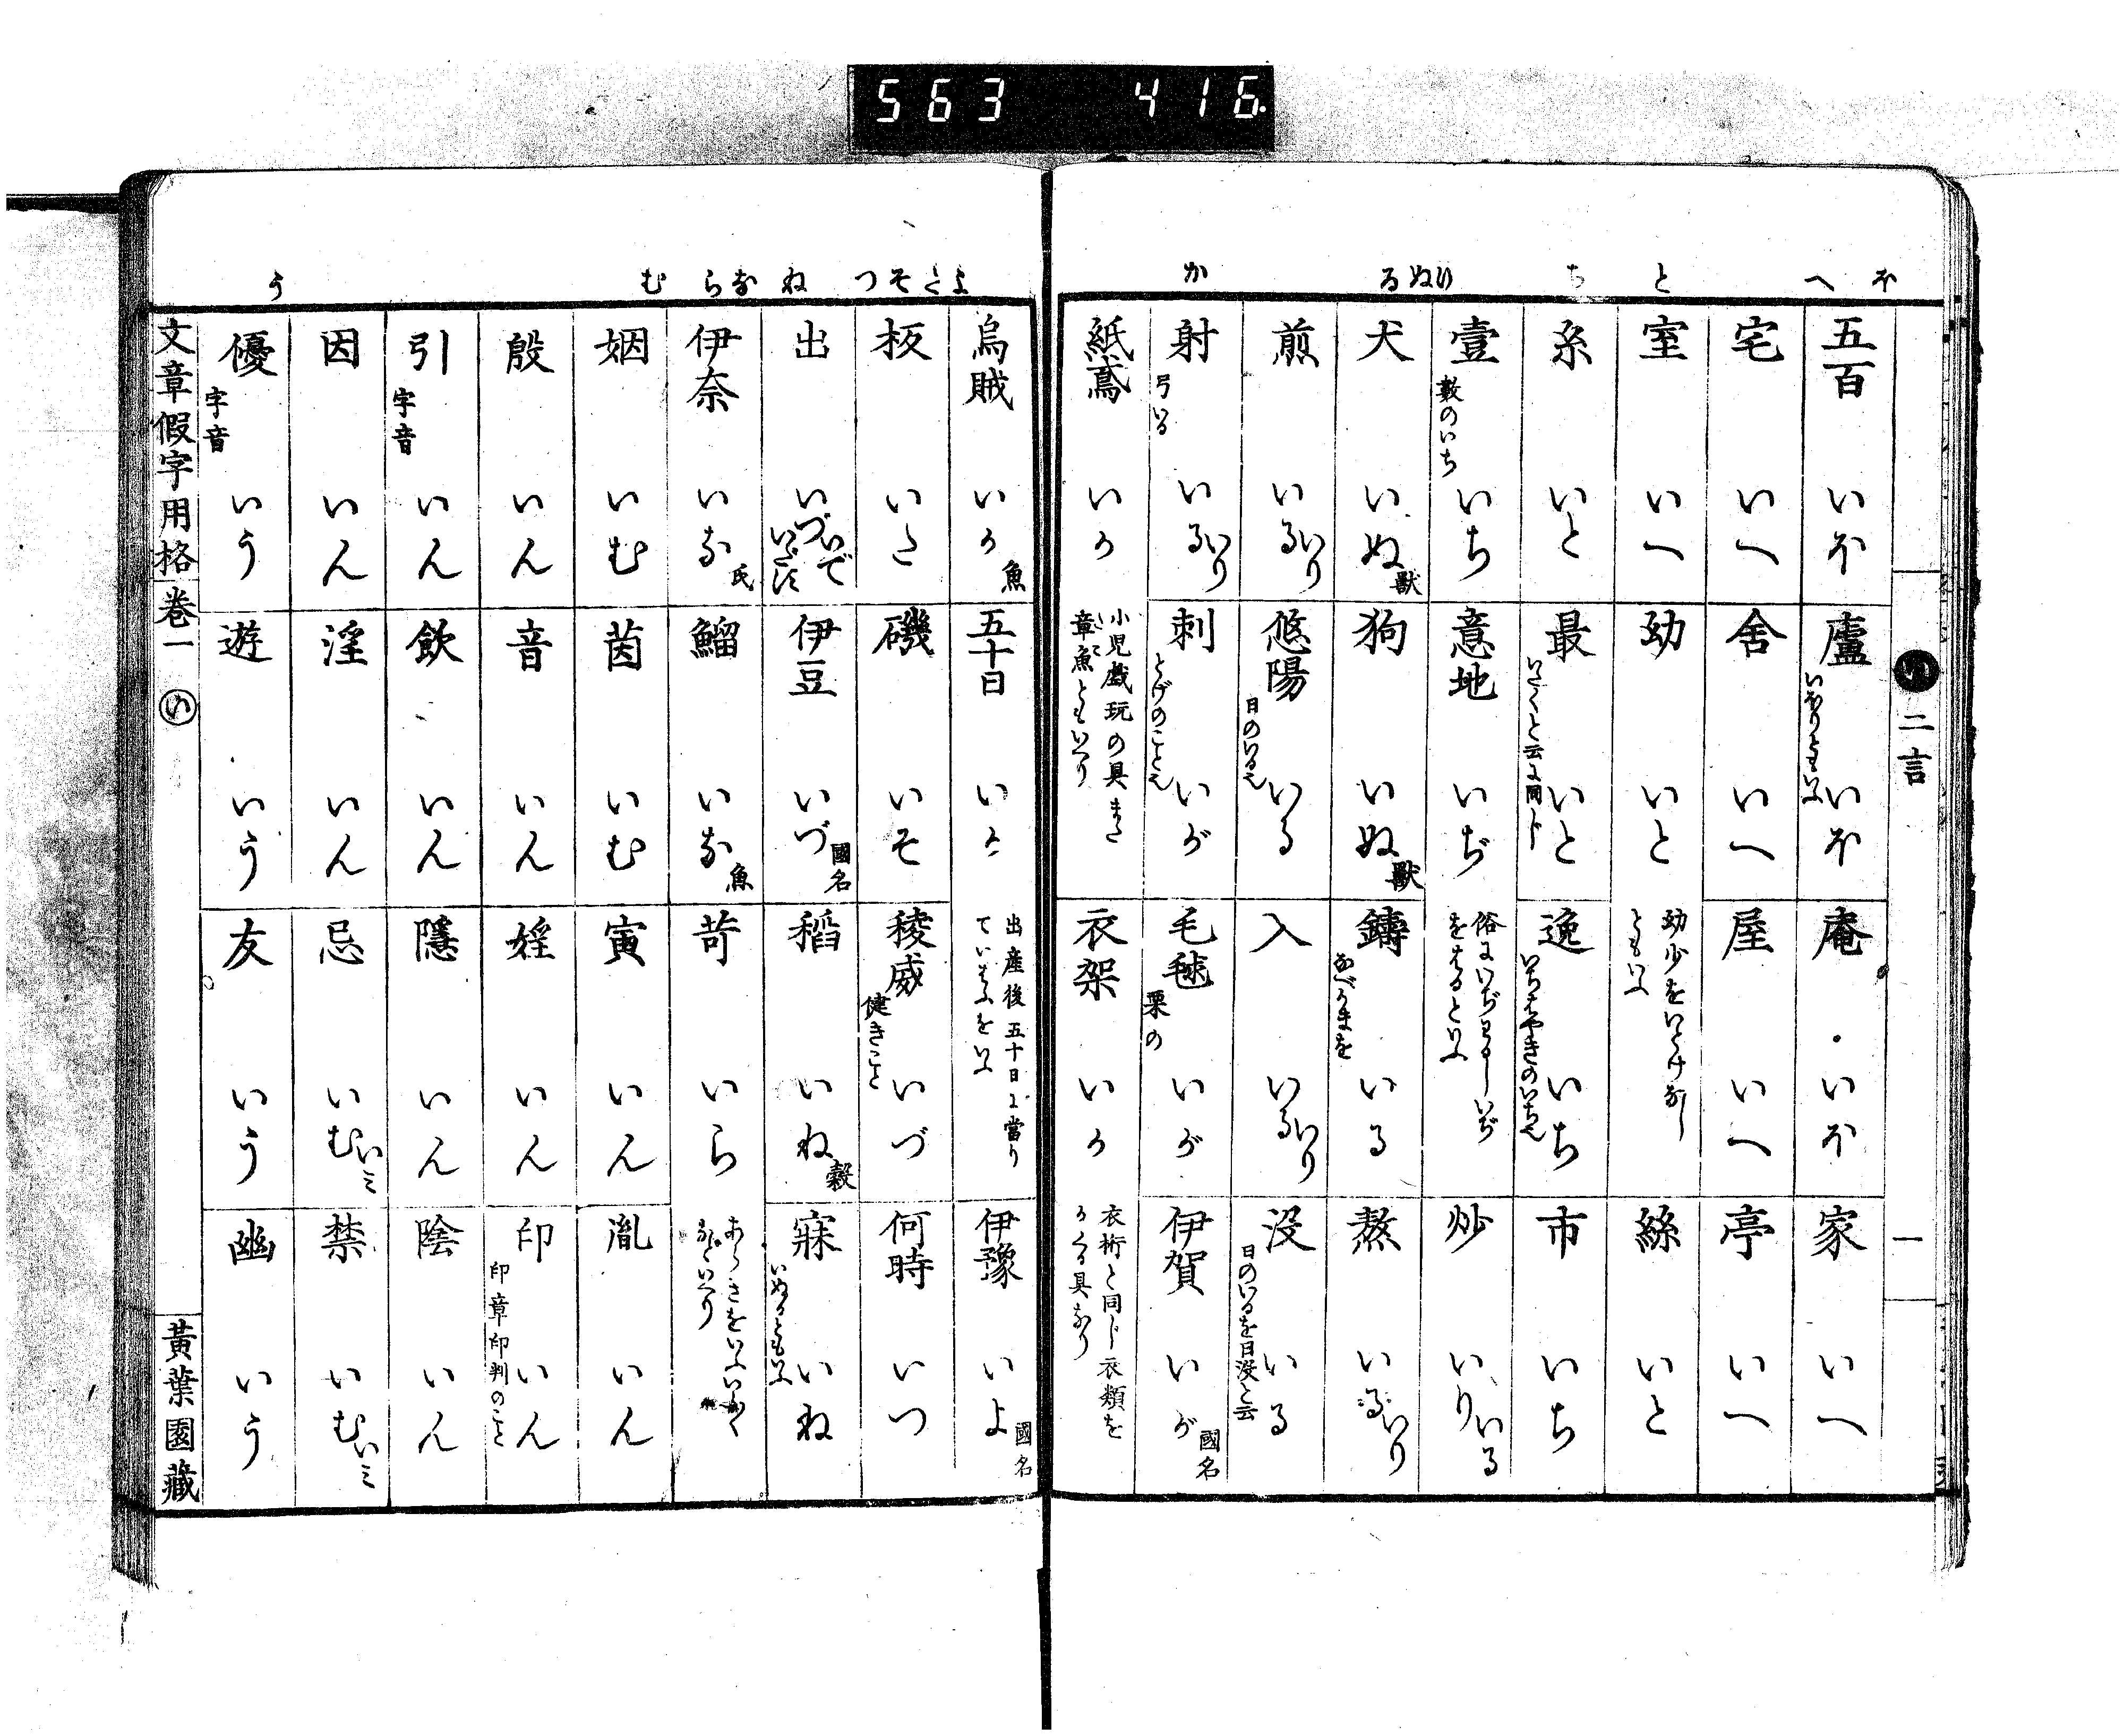 563 416.
ほ へ と ち りぬる か
い 二言 一
五百 いほ
廬 いほりともいふ いほ
庵 いほ
家 いへ
宅 いへ
舎 いへ
屋 いへ
亭 いへ
室 いへ
幼 いと 幼少をいとけなしともいふ
絲 いと
糸 いと
最 いたくと云に同じ いと
逸 いちはやきのいち也 いち
市 いち
壹 數のいち いち
意地 いぢ
炒 いり いる
犬 いぬ 獸
狗 いぬ 獸
鑄 なべかまを いる
熬 いる いり
煎 いる いり
悠陽 日のいる也 いる
入 いる いり
没 日のいるを日没と云 いる
射 弓いる いる いり
刺 とげのこと也 いが
毛毬 栗の いが
伊賀 いが 國名
紙鳶 いか 小児戯玩の具また章魚ともいへり
衣架 いか 衣桁と同じ衣類をかくる具なり
よ た そ つ ね な ら む う
烏賊 いか 魚
五十日 いか 出産後五十日に當りていはふをいふ
伊豫 いよ 國名
板 いた
磯 いそ
稜威 健きこと いづ
何時 いつ
出 いづ いで いだす
伊豆 いづ 國名
稲 いね 穀
寐 いぬるともいふ いね
伊奈 いな 氏
鰡 いな 魚
苛 いら
姻 いむ
茵 いむ
寅 いん
胤 いん
殷 いん
音 いん
婬 いん
印 印章印判のこと いん
引 字音 いん
飲 いん
隱 いん
陰 いん
因 いん
淫 いん
忌 いむ いミ
禁 いむ いミ
優 字音 いう
遊 いう
友 いう
幽 いう
文章假字用格 卷一 い 黃葉園藏